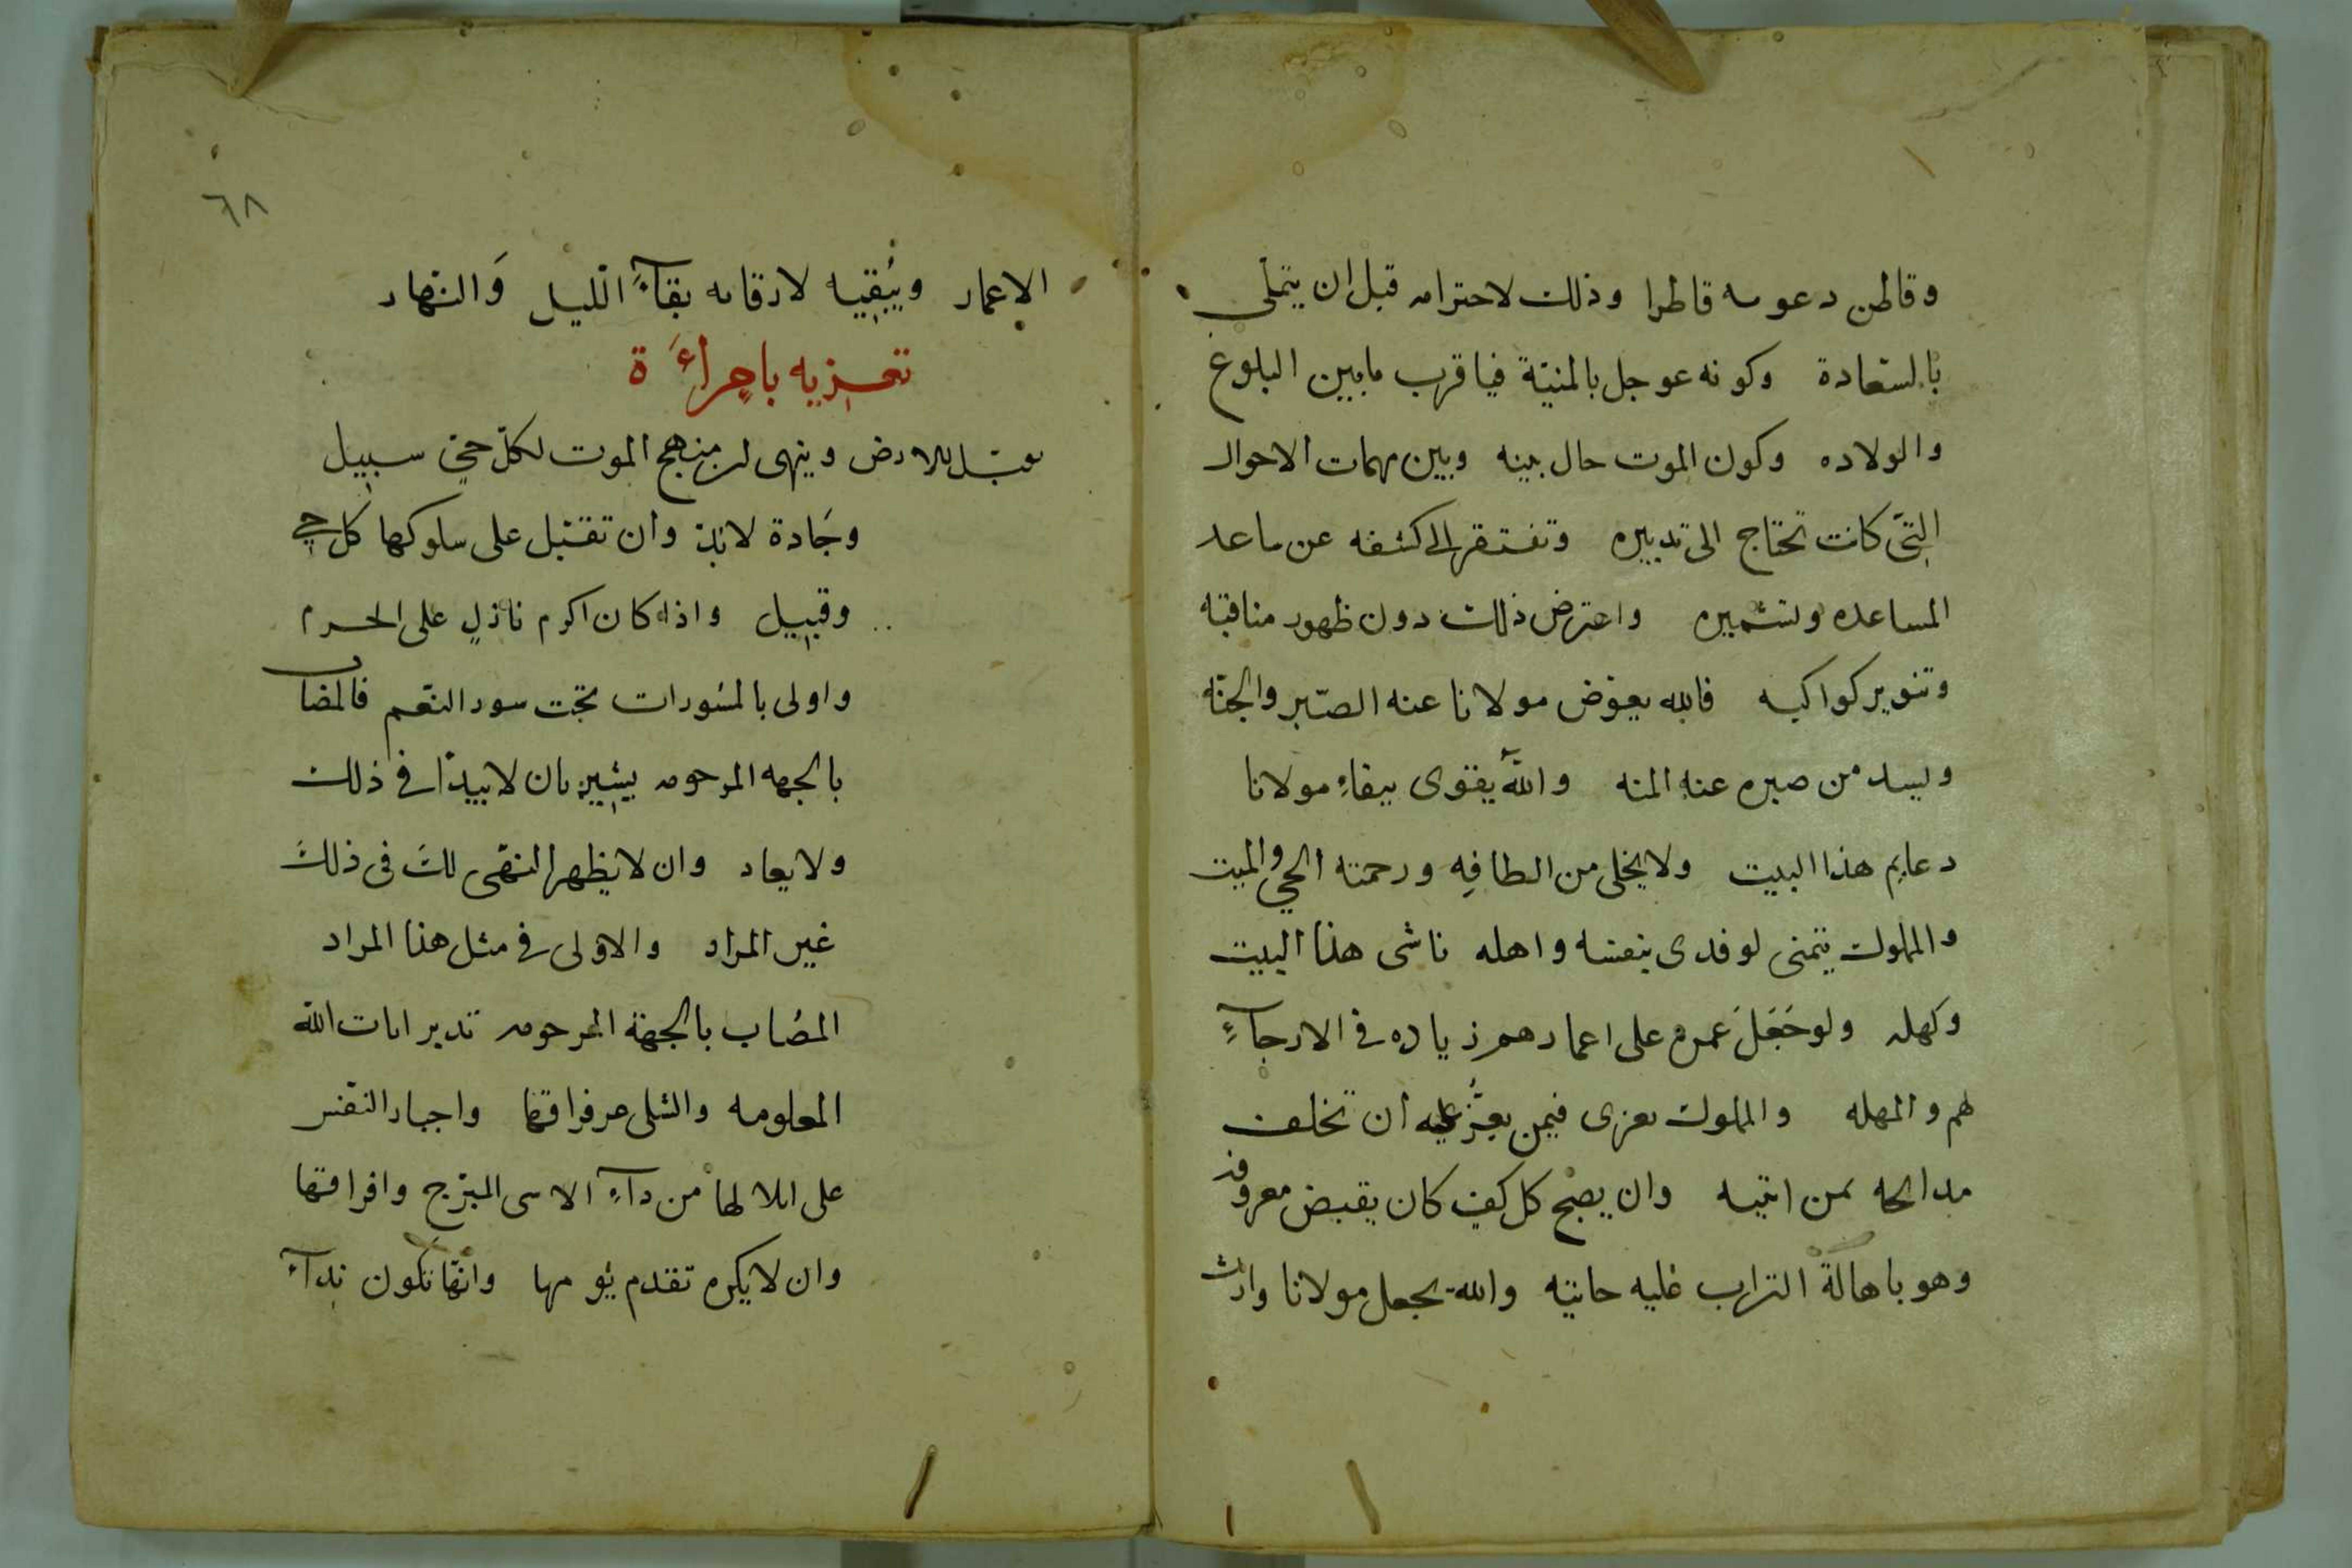 وقاطن دعوىه قاطرا وذلك لاحترامه قبل ان يتملى
بالسّعادة وكونه عوجل بالمنيّة فيا قرب مابين البلوغ
والولاده وكون الموت حال بينه وبين مهمات الاحوال
التى كانت تحتاج الى تدبيره وتفتقر الى كشفه عن ساعد
المساعده وتشميره واعترض ذلك دون ظهور مناقبه
وتنوير كواكبه فالله يعوّض مولانا عنه الصّبر والجنّة
وليسد من صبره عنه المنه واللّه يقوى ببقاءِ مولانا
دعايم هذا البيت ولا يخلى من الطافِه ورحمته الحي والميت
والمملوك يتمنى لو فدى بنفسه واهله ناشى هذا البيت
وكهله ولو جَعَلَ عمره على اعمارهم زياده فى الارجآءِ
لهم والمهله والمملوك يعزى فيمن يعِزُّ عليه ان تخلف
مدائحه بمن اتيه وان يصبح كل كفٍ كان يقبض معروفه
وهو باهالة التراب عليه حانيه والله يجعل مولانا وارث
٦٨
الاعمار ويُبقيه لارقابه بقآءَ اللّيل وَالنّهار
تعزيه باِمرأَة
يقبّل الارض وينهى ان منهج الموت لكلّ حىٍّ سبيل
وجَادة لابدّ وان تقبل على سلوكها كل حي
وقبيل واذا كان اكرم نازلٍ على الحرم
واولى بالمستورات تحت ستور النّعم فالمصاب
بالجهه المرحومه يشير بان لا يبدا فى ذلك
ولا يعاد وان لا يظهر النهى لكَ فى ذلكَ
غير المراد والاولى فى مثل هذا المراد
المصُاب بالجهة المرحومه تدبر ايات اللّه
المعلومه والتسلى عن فراقها واجبار النّفس
على ابلالها من دآءِ الاسى المبرّح وافراقها
وان لا يكره تقدم يومها وانّها تكون ندآءَ